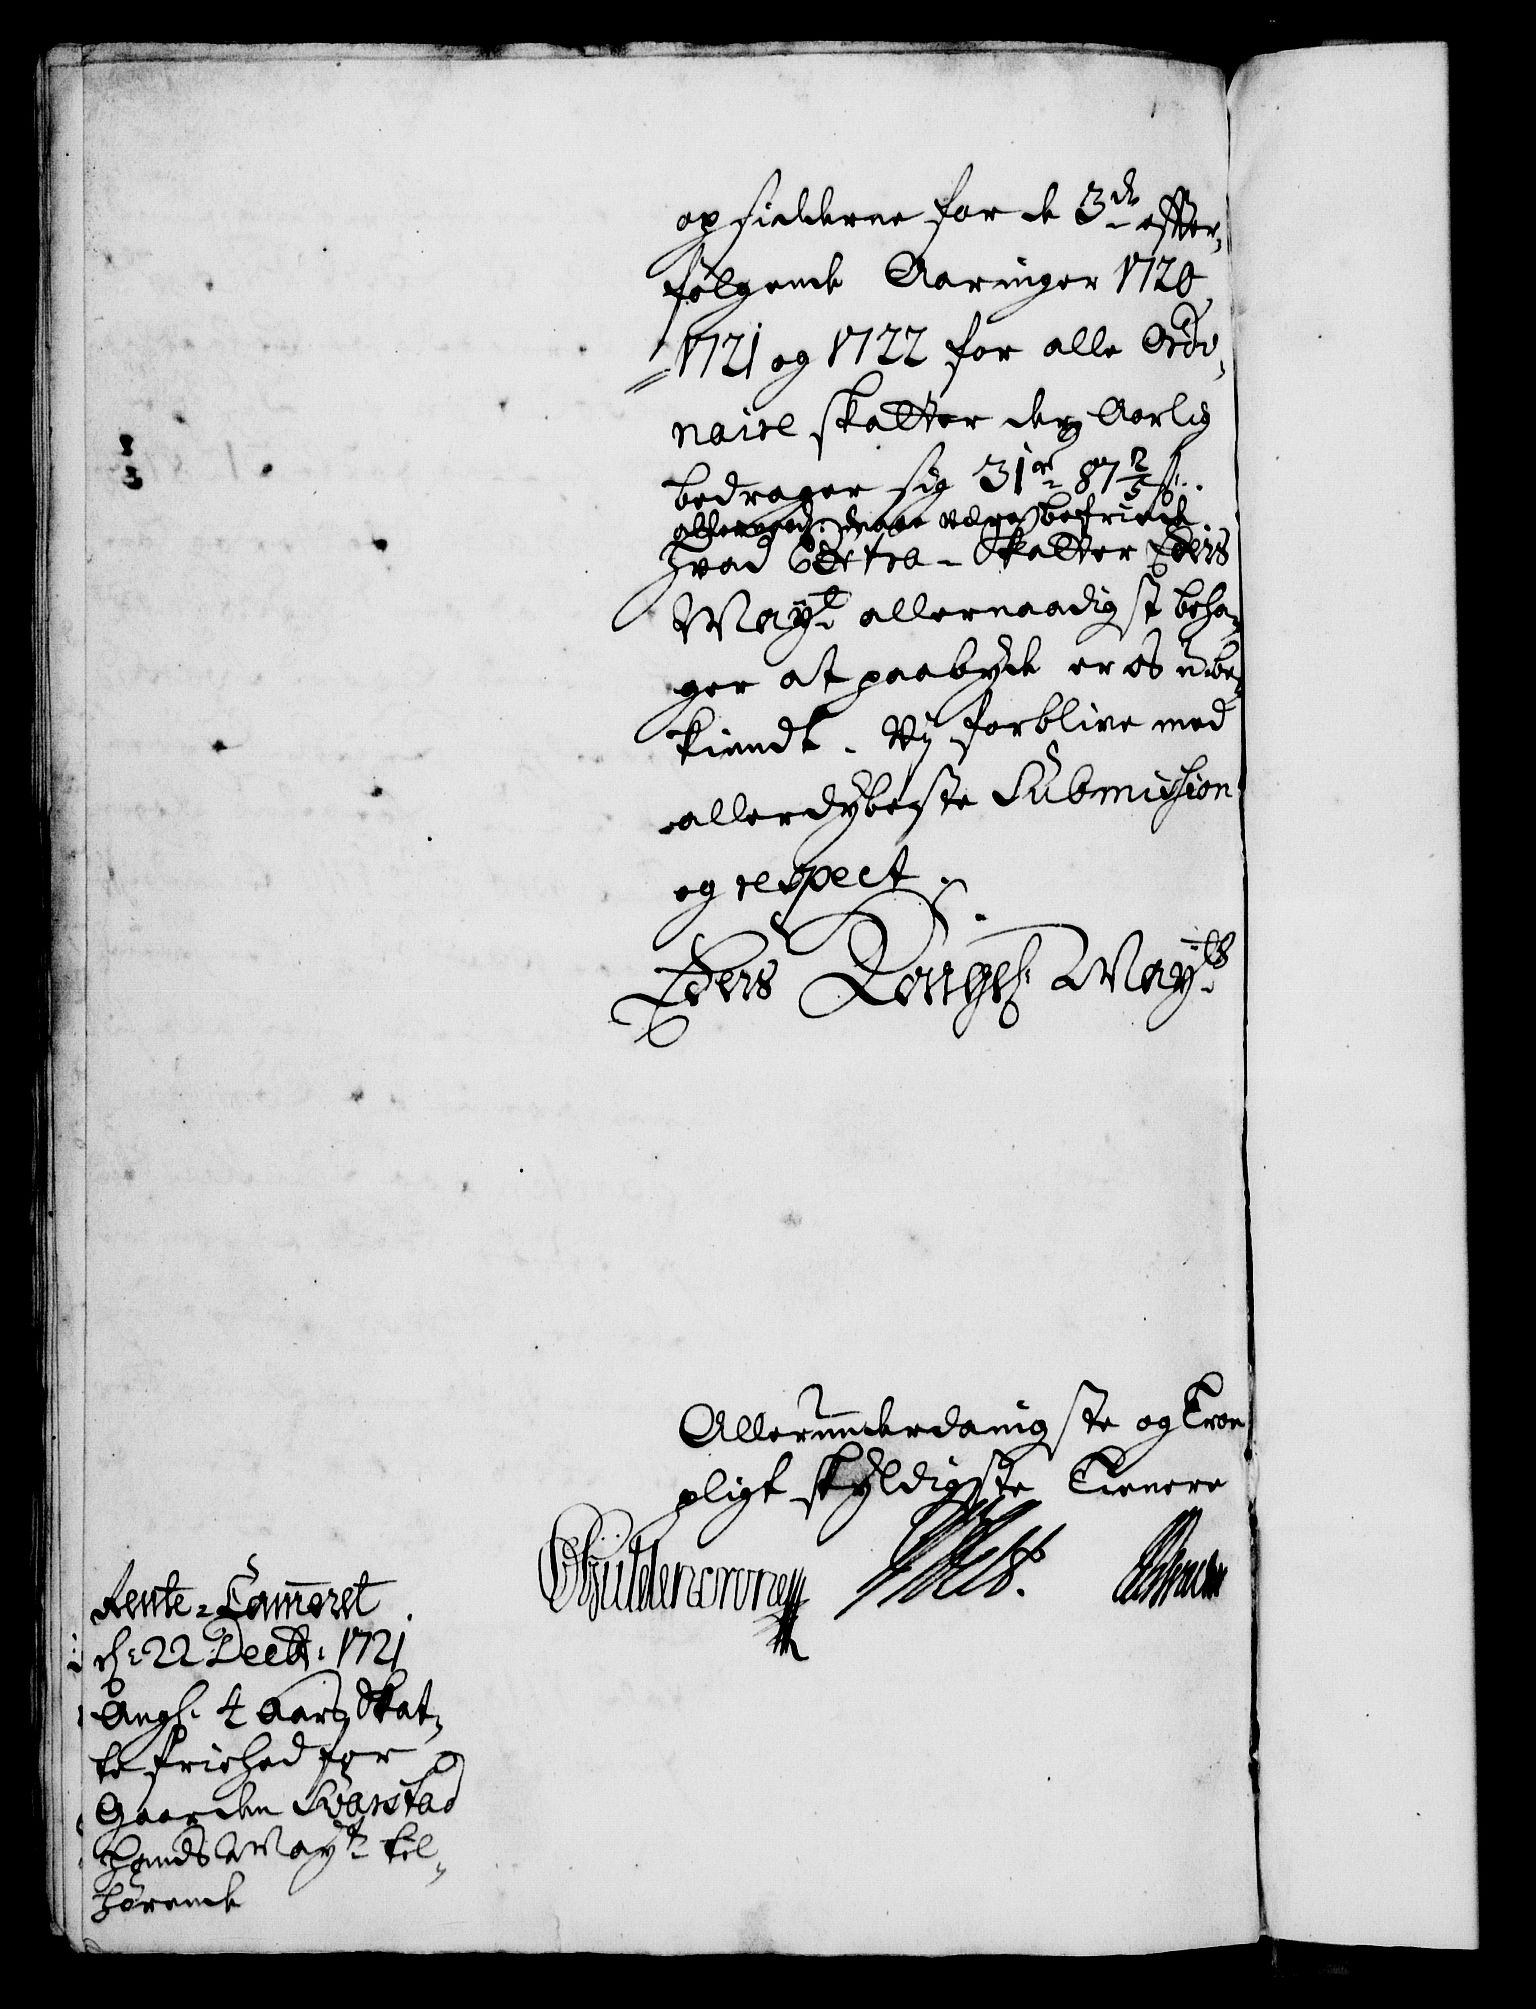 opsidderne for de 3de effter,
følgende Aaringer 1720
1721 og 1722 for alle Ordi,
naire skatter der Aarlig
bedrager sig 31 rd 87 2/5 s.
allernaad: maae være befriede.
hvad Extra-Skatter Eders
Mayt allernaadigst beha,
ger at paabyde er os ube,
kiendt. Vy forblive med
allerdybeste Submission
og respect.
Eders Kongel. Mayts
Allerunderdanigste og Troe
pligt skyldigste Tienere
Güldencrone
Rente-Cammeret
d: 22 Decbr: 1721
Angl. 4 Aars Skat,
te friehed for
Gaarden Svarstad
hands Mayt til,
hørende